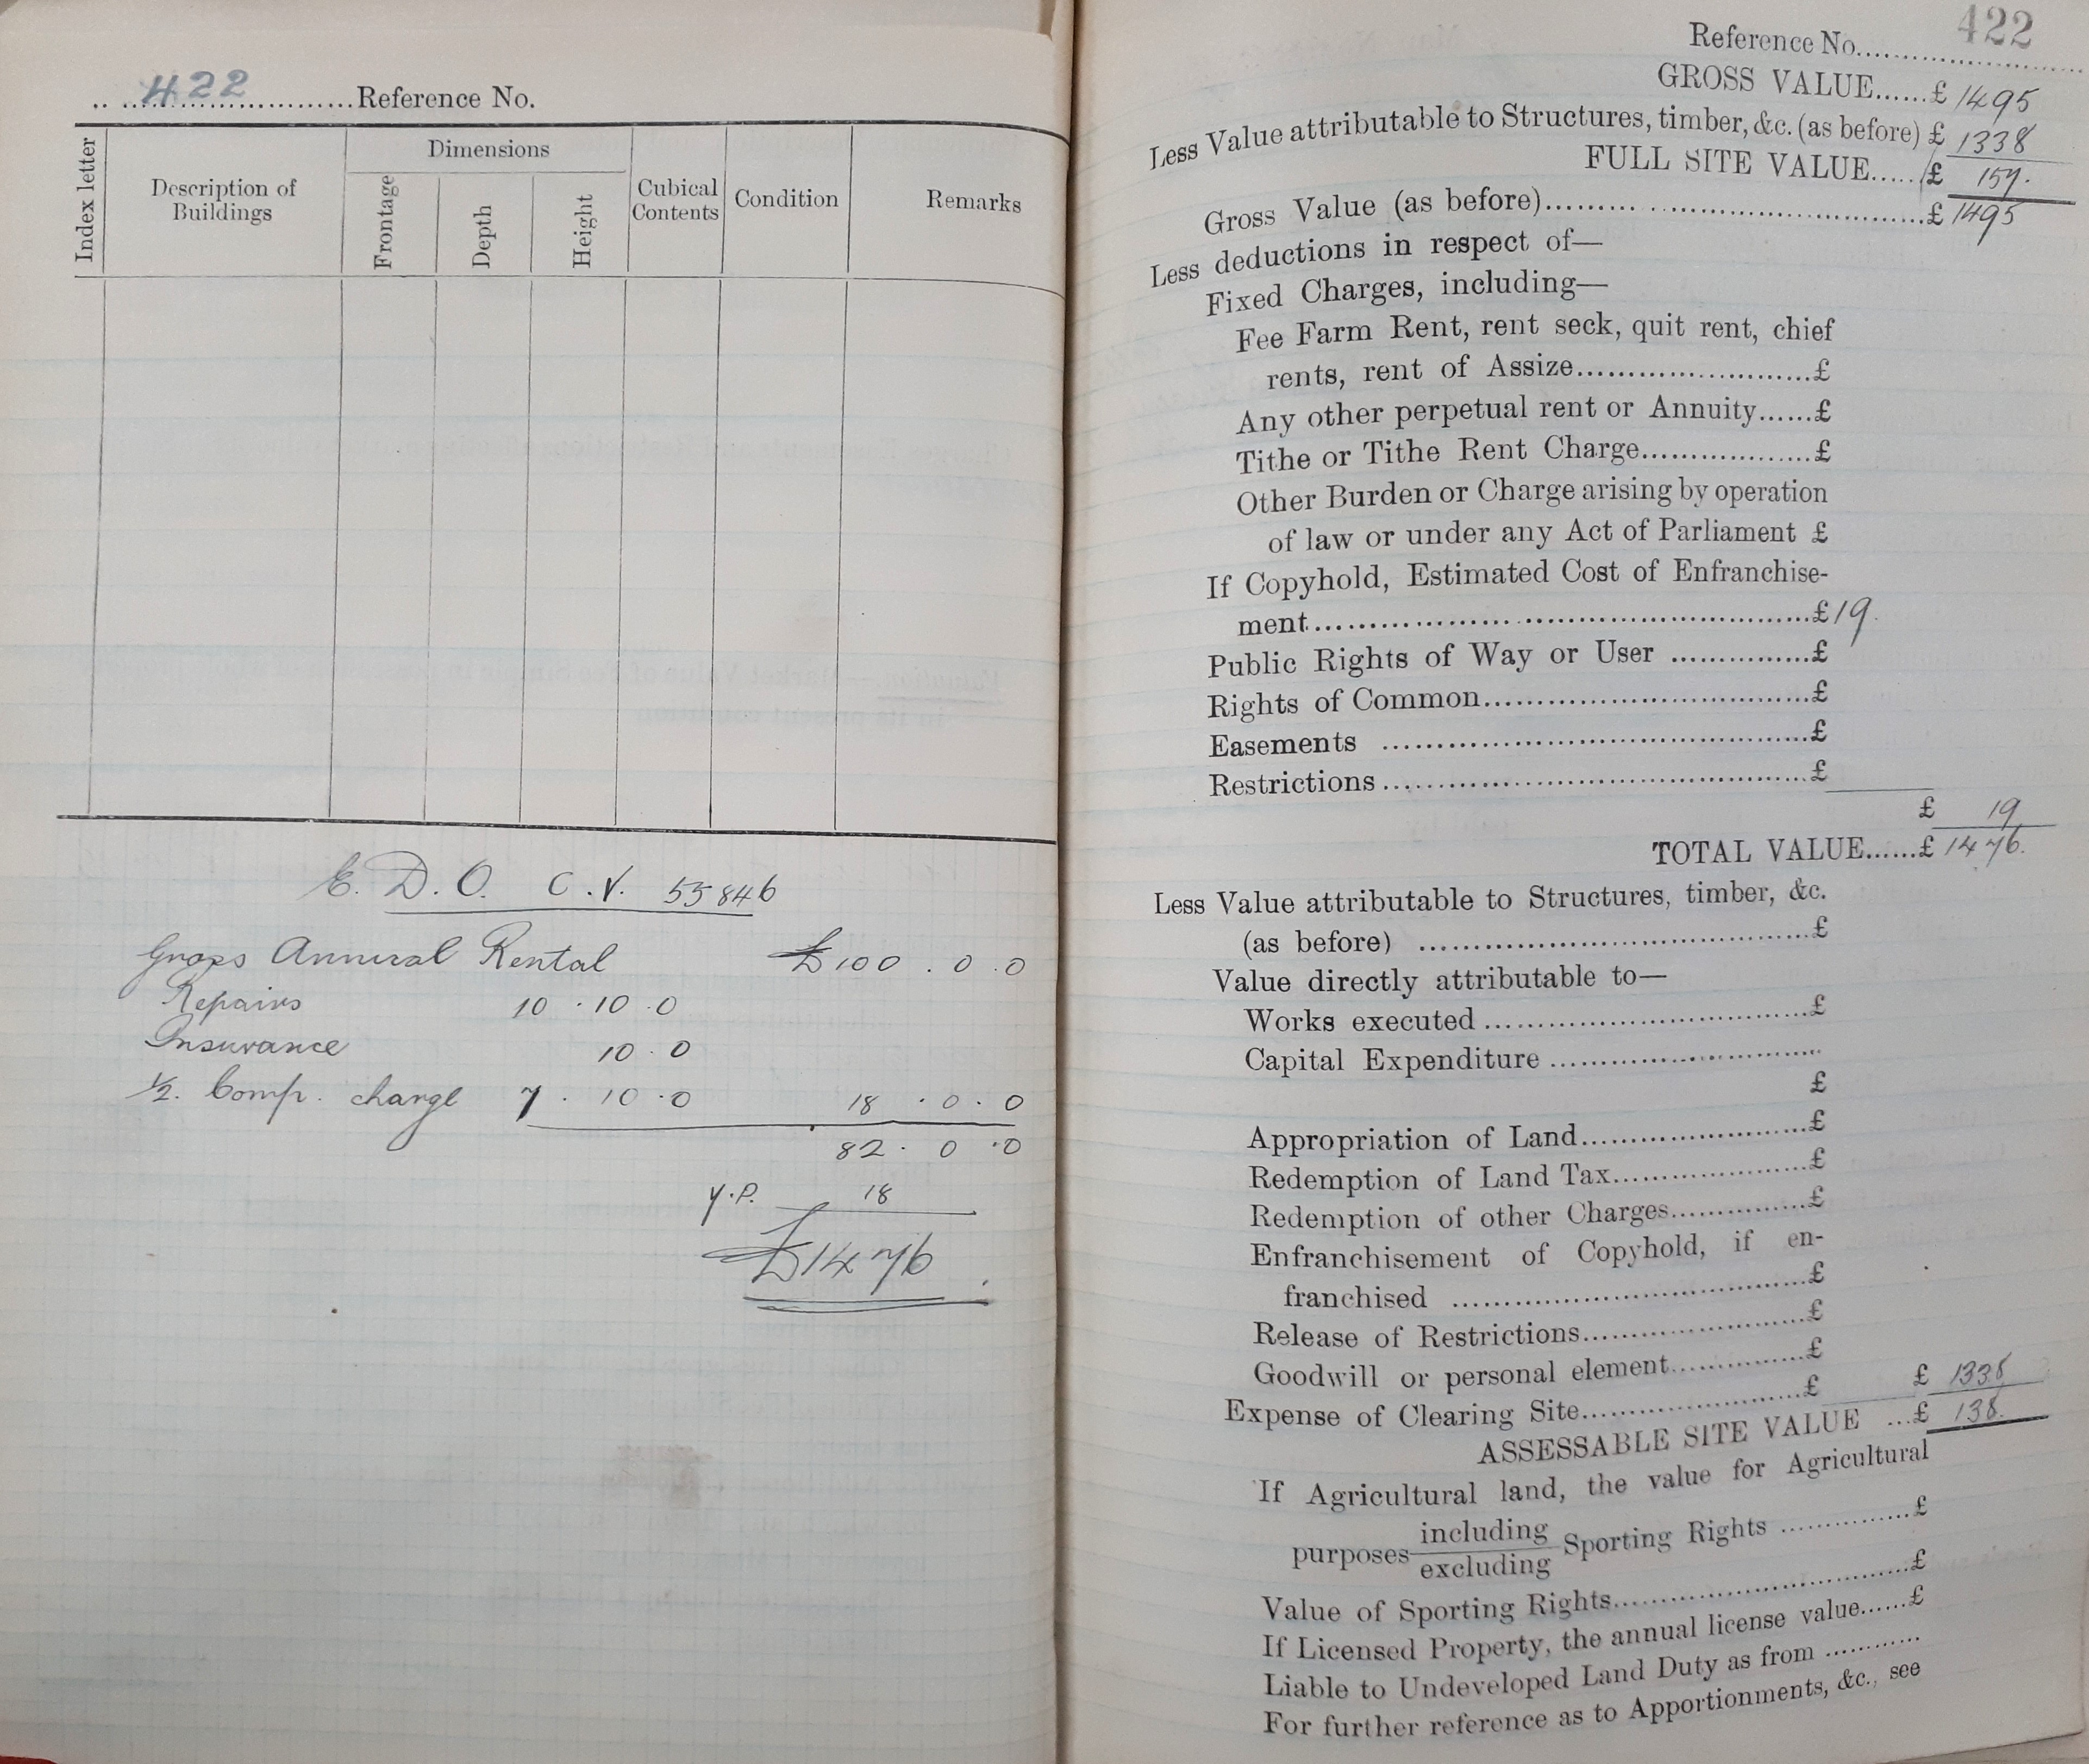 422 Reference No.
Index letter
Description of Buildings
Dimensions
Frontage
Depth
Height
Cubical Contents
Condition
Remarks
E. D. O. C. V. 55846
Gross Annual Rental £100 . 0 . 0
Repairs 10 . 10 . 0
Insurance 10 . 0
1/2. Comp. charge 7 . 10 . 0 18 . 0 . 0
82 . 0 . 0
Y.P. 18
£1476
Reference No. 422
GROSS VALUE......£ 1495
Less Value attributable to Structures, timber, &c. (as before) £ 1338
FULL SITE VALUE.....£ 157.
Gross Value (as before)..........£ 1495
Less deductions in respect of—
Fixed Charges, including—
Fee Farm Rent, rent seck, quit rent, chief
rents, rent of Assize..........£
Any other perpetual rent or Annuity......£
Tithe or Tithe Rent Charge..........£
Other Burden or Charge arising by operation
of law or under any Act of Parliament £
If Copyhold, Estimated Cost of Enfranchise-
ment..........£ 19.
Public Rights of Way or User ..........£
Rights of Common..........£
Easements ..........£
Restrictions..........£
£ 19
TOTAL VALUE......£ 1476.
Less Value attributable to Structures, timber, &c.
(as before) ..........£
Value directly attributable to—
Works executed ..........£
Capital Expenditure ..........
£
Appropriation of Land..........£
Redemption of Land Tax..........£
Redemption of other Charges..........£
Enfranchisement of Copyhold, if en-
franchised ..........£
Release of Restrictions..........£
Goodwill or personal element..........£
Expense of Clearing Site..........£ £ 1338
ASSESSABLE SITE VALUE ...£ 138.
If Agricultural land, the value for Agricultural
purposes including excluding Sporting Rights ..........£
Value of Sporting Rights..........£
If Licensed Property, the annual license value......£
Liable to Undeveloped Land Duty as from ............
For further reference as to Apportionments, &c., see